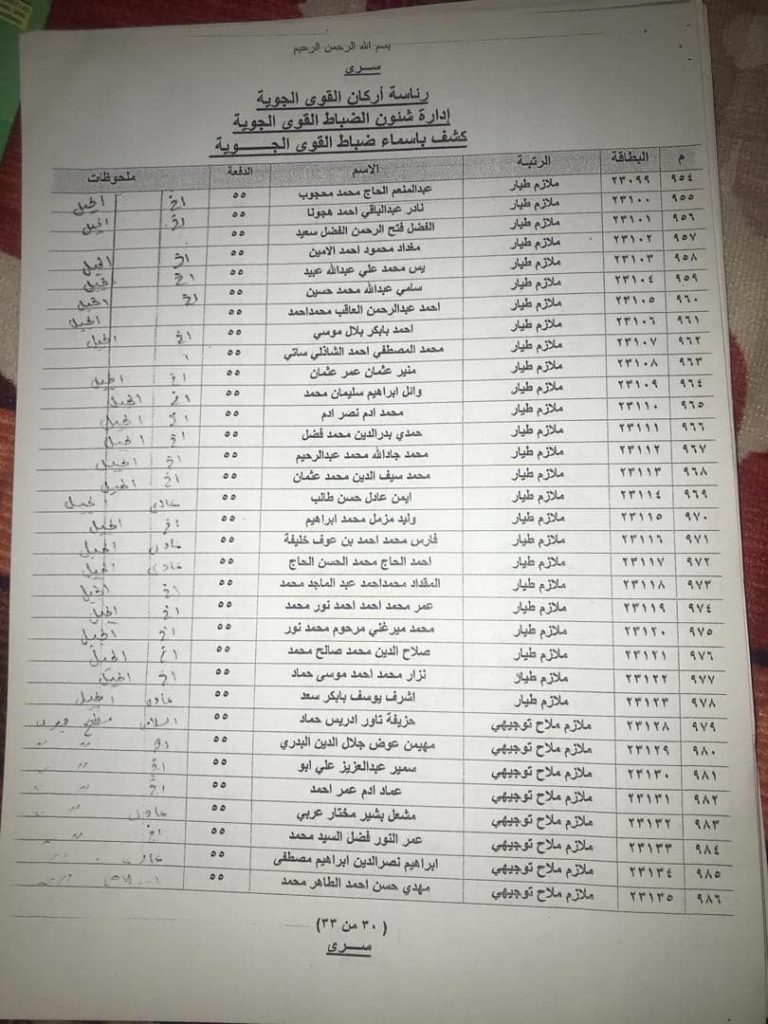 بسم الله الرحمن الرحيم
سـرى
رئاسة أركان القوى الجوية
إدارة شئون الضباط القوى الجوية
كشف باسماء ضباط القوى الجـــوية
م البطاقة الرتبة الاسم الدفعة ملحوظات
٩٥٤ ٢٣٠٩٩ ملازم طيار عبدالمنعم الحاج محمد محجوب ٥٥
٩٥٥ ٢٣١٠٠ ملازم طيار نادر عبدالباقي احمد هجونا ٥٥
٩٥٦ ٢٣١٠١ ملازم طيار الفضل فتح الرحمن الفضل سعيد ٥٥
٩٥٧ ٢٣١٠٢ ملازم طيار مغداد محمود احمد الامين ٥٥
٩٥٨ ٢٣١٠٣ ملازم طيار يس محمد علي عبدالله عبيد ٥٥
٩٥٩ ٢٣١٠٤ ملازم طيار سامي عبدالله محمد حسين ٥٥
٩٦٠ ٢٣١٠٥ ملازم طيار احمد عبدالرحمن العاقب محمداحمد ٥٥
٩٦١ ٢٣١٠٦ ملازم طيار احمد بابكر بلال موسي ٥٥
٩٦٢ ٢٣١٠٧ ملازم طيار محمد المصطفي احمد الشاذلي ساتي ٥٥
٩٦٣ ٢٣١٠٨ ملازم طيار منير عثمان عمر عثمان ٥٥
٩٦٤ ٢٣١٠٩ ملازم طيار وائل ابراهيم سليمان محمد ٥٥
٩٦٥ ٢٣١١٠ ملازم طيار محمد ادم نصر ادم ٥٥
٩٦٦ ٢٣١١١ ملازم طيار حمدي بدرالدين محمد فضل ٥٥
٩٦٧ ٢٣١١٢ ملازم طيار محمد جادالله محمد عبدالرحيم ٥٥
٩٦٨ ٢٣١١٣ ملازم طيار محمد سيف الدين محمد عثمان ٥٥
٩٦٩ ٢٣١١٤ ملازم طيار ايمن عادل حسن طالب ٥٥
٩٧٠ ٢٣١١٥ ملازم طيار وليد مزمل محمد ابراهيم ٥٥
٩٧١ ٢٣١١٦ ملازم طيار فارس محمد احمد بن عوف خليفة ٥٥
٩٧٢ ٢٣١١٧ ملازم طيار احمد الحاج محمد الحسن الحاج ٥٥
٩٧٣ ٢٣١١٨ ملازم طيار المقداد محمداحمد عبد الماجد محمد ٥٥
٩٧٤ ٢٣١١٩ ملازم طيار عمر محمد احمد احمد نور محمد ٥٥
٩٧٥ ٢٣١٢٠ ملازم طيار محمد ميرغني مرحوم محمد نور ٥٥
٩٧٦ ٢٣١٢١ ملازم طيار صلاح الدين محمد صالح محمد ٥٥
٩٧٧ ٢٣١٢٢ ملازم طيار نزار محمد احمد موسى حماد ٥٥
٩٧٨ ٢٣١٢٣ ملازم طيار اشرف يوسف بابكر سعد ٥٥
٩٧٩ ٢٣١٢٨ ملازم ملاح توجيهي حزيفة تاور ادريس حماد ٥٥
٩٨٠ ٢٣١٢٩ ملازم ملاح توجيهي مهيمن عوض جلال الدين البدري ٥٥
٩٨١ ٢٣١٣٠ ملازم ملاح توجيهي سمير عبدالعزيز علي ابو ٥٥
٩٨٢ ٢٣١٣١ ملازم ملاح توجيهي عماد ادم عمر احمد ٥٥
٩٨٣ ٢٣١٣٢ ملازم ملاح توجيهي مشعل بشير مختار عربي ٥٥
٩٨٤ ٢٣١٣٣ ملازم ملاح توجيهي عمر النور فضل السيد محمد ٥٥
٩٨٥ ٢٣١٣٤ ملازم ملاح توجيهي ابراهيم نصرالدين ابراهيم مصطفى ٥٥
٩٨٦ ٢٣١٣٥ ملازم ملاح توجيهي مهدي حسن احمد الطاهر محمد ٥٥
(٣٠ من ٣٣)
سـرى